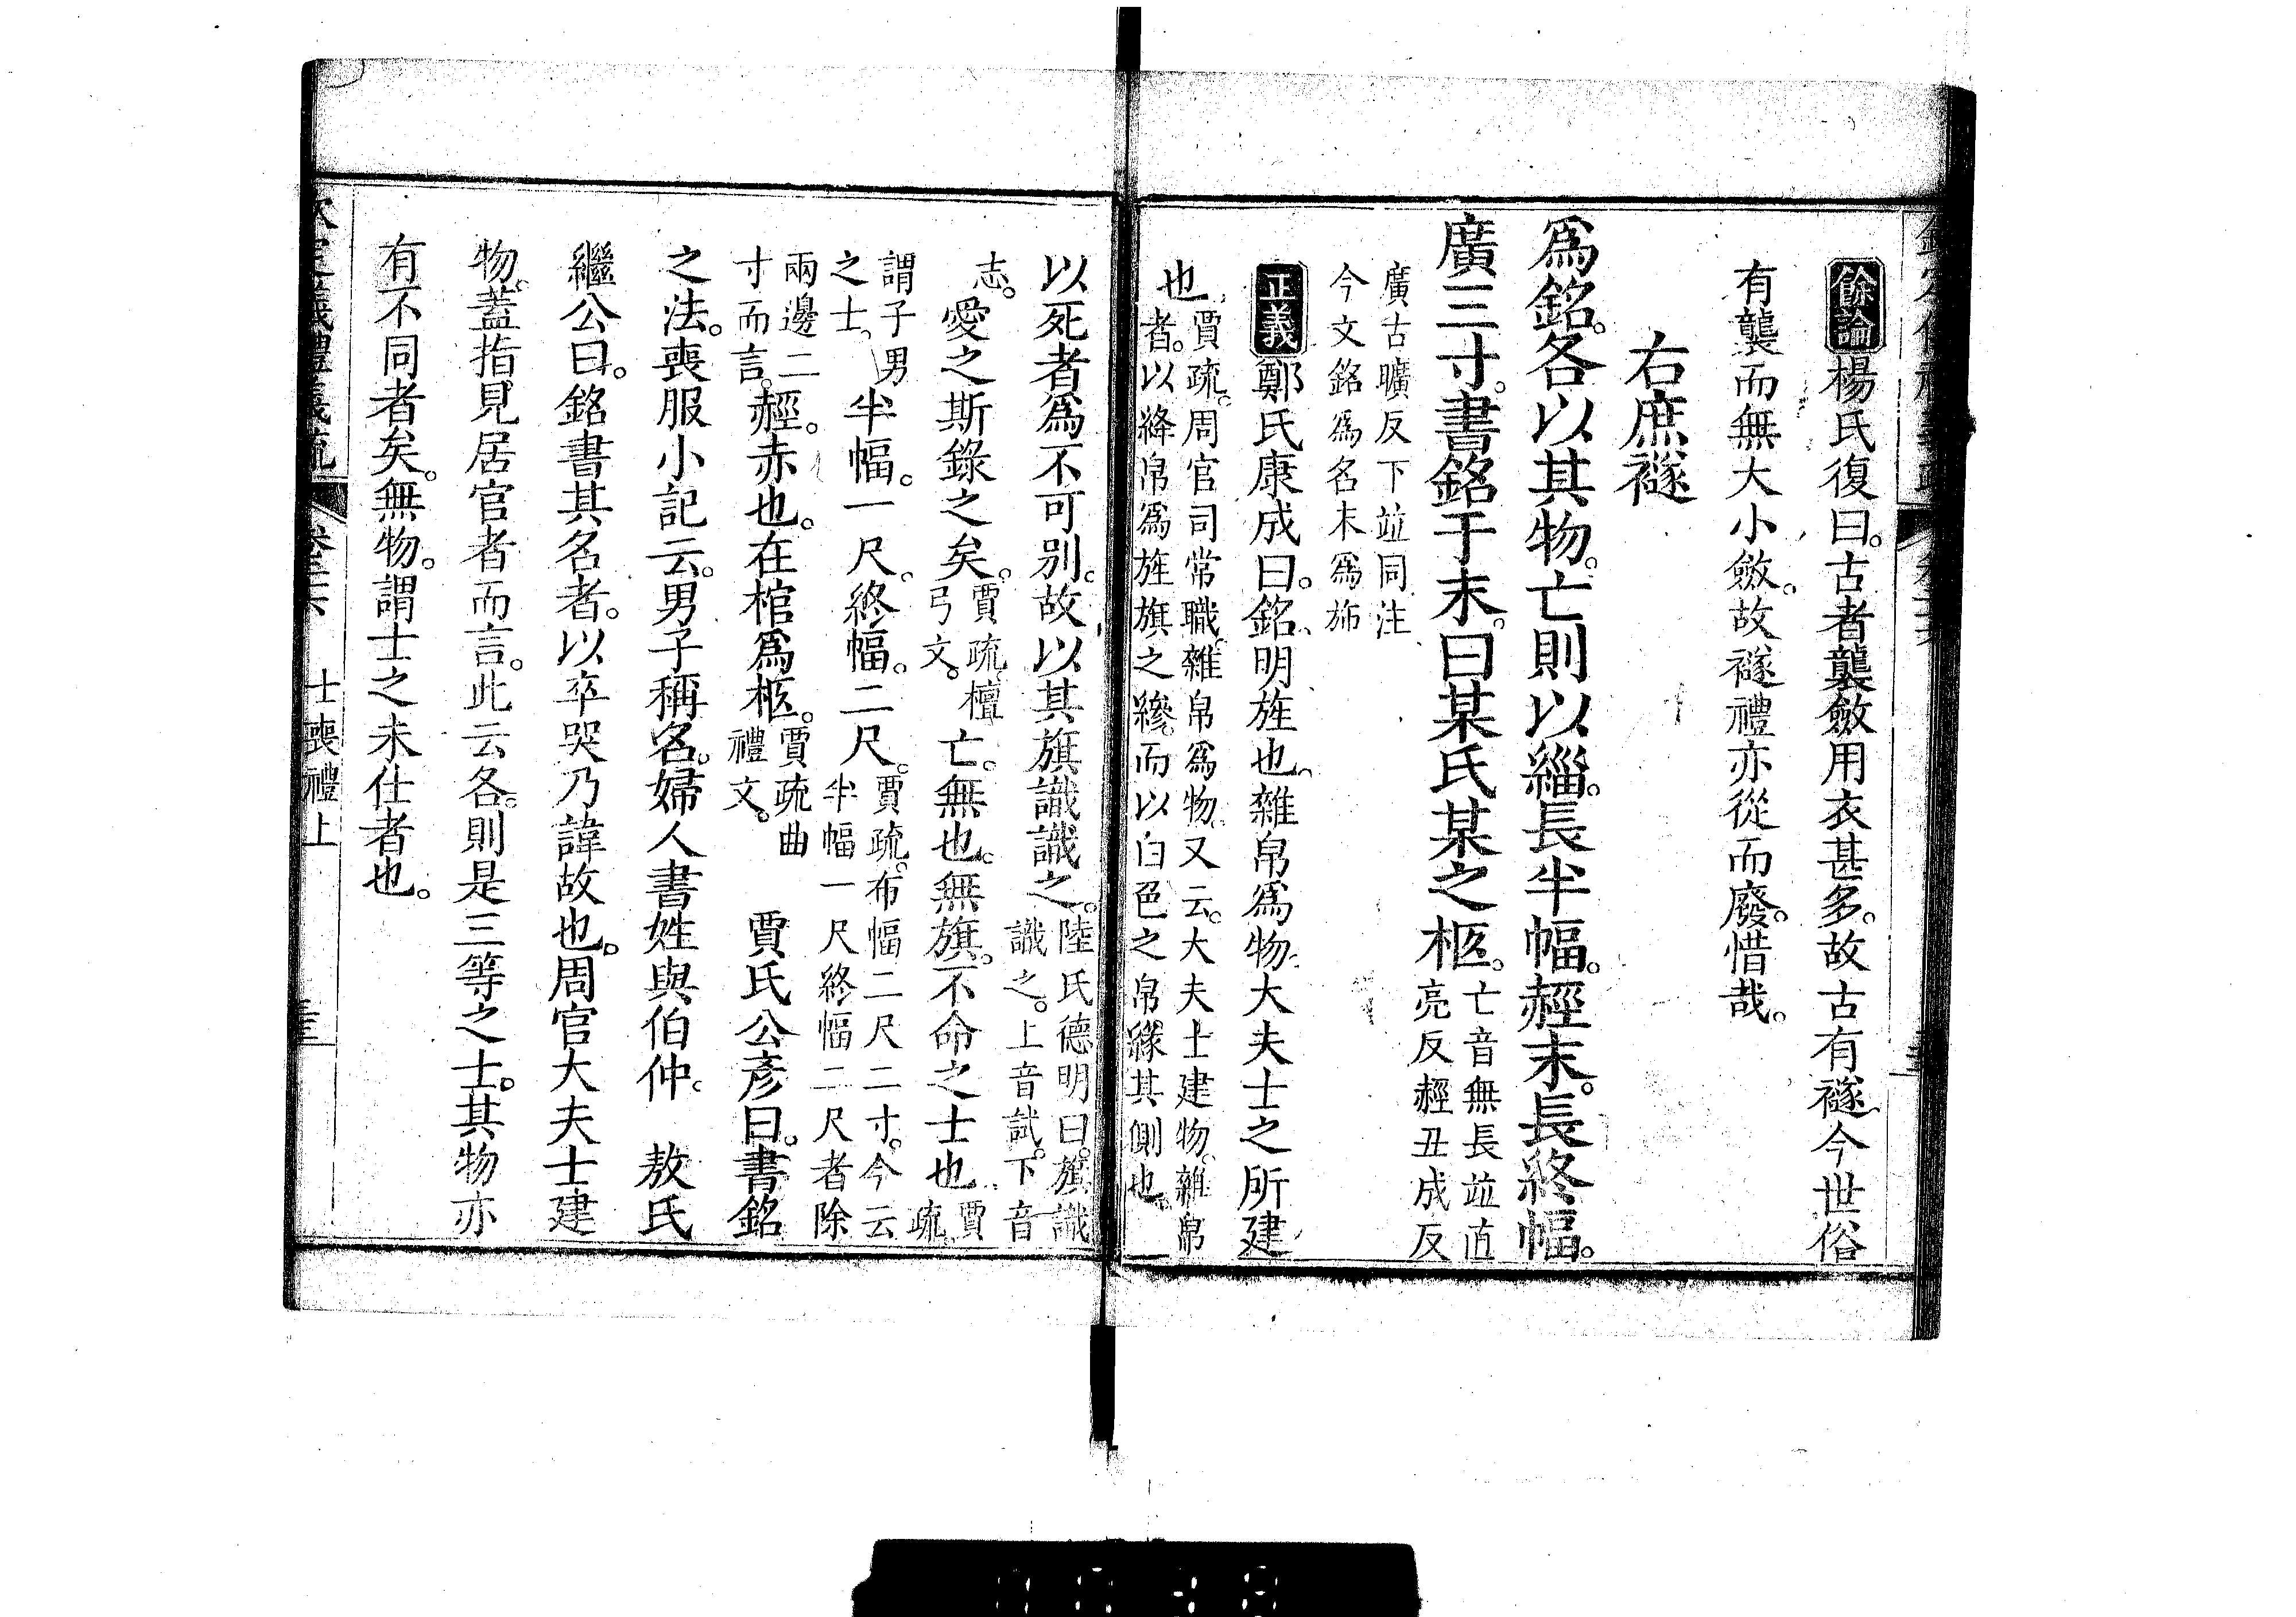 餘論楊氏復曰。古者襲斂用衣甚多。故古有襚。今世俗
有襲而無大小斂。故襚禮亦從而廢。惜哉。
右庶襚
爲銘。各以其物。亡則以緇。長半幅。赬末。長終幅。
廣三寸。書銘于末。曰某氏某之柩。亡音無長竝直
亮反赬丑成反
廣古曠反下竝同注
今文銘爲名末爲斾
正義鄭氏康成曰。銘、明旌也。雜帛爲物。大夫士之所建
也。賈疏。周官司常職。雜帛爲物。又云。大夫士建物。雜帛
者。以絳帛爲旌旗之縿。而以白色之帛緣其側也。
以死者爲不可别。故以其旗識識之。陸氏德明曰。旗識
識之。上音試。下音
志。愛之斯錄之矣。賈疏。檀
弓文。亡。無也。無旗。不命之士也賈
疏
謂子男
之士。半幅。一尺。終幅。二尺。賈疏。布幅二尺二寸。今云
半幅一尺終幅二尺者除
兩邊二
寸而言。赬。赤也。在棺爲柩。賈疏曲
禮文。賈氏公彥曰。書銘
之法。喪服小記云。男子稱名。婦人書姓與伯仲。敖氏
繼公曰。銘書其名者。以卒哭乃諱故也。周官大夫士建
物。蓋指見居官者而言。此云各。則是三等之士。其物亦
有不同者矣。無物。謂士之未仕者也。
士喪禮上